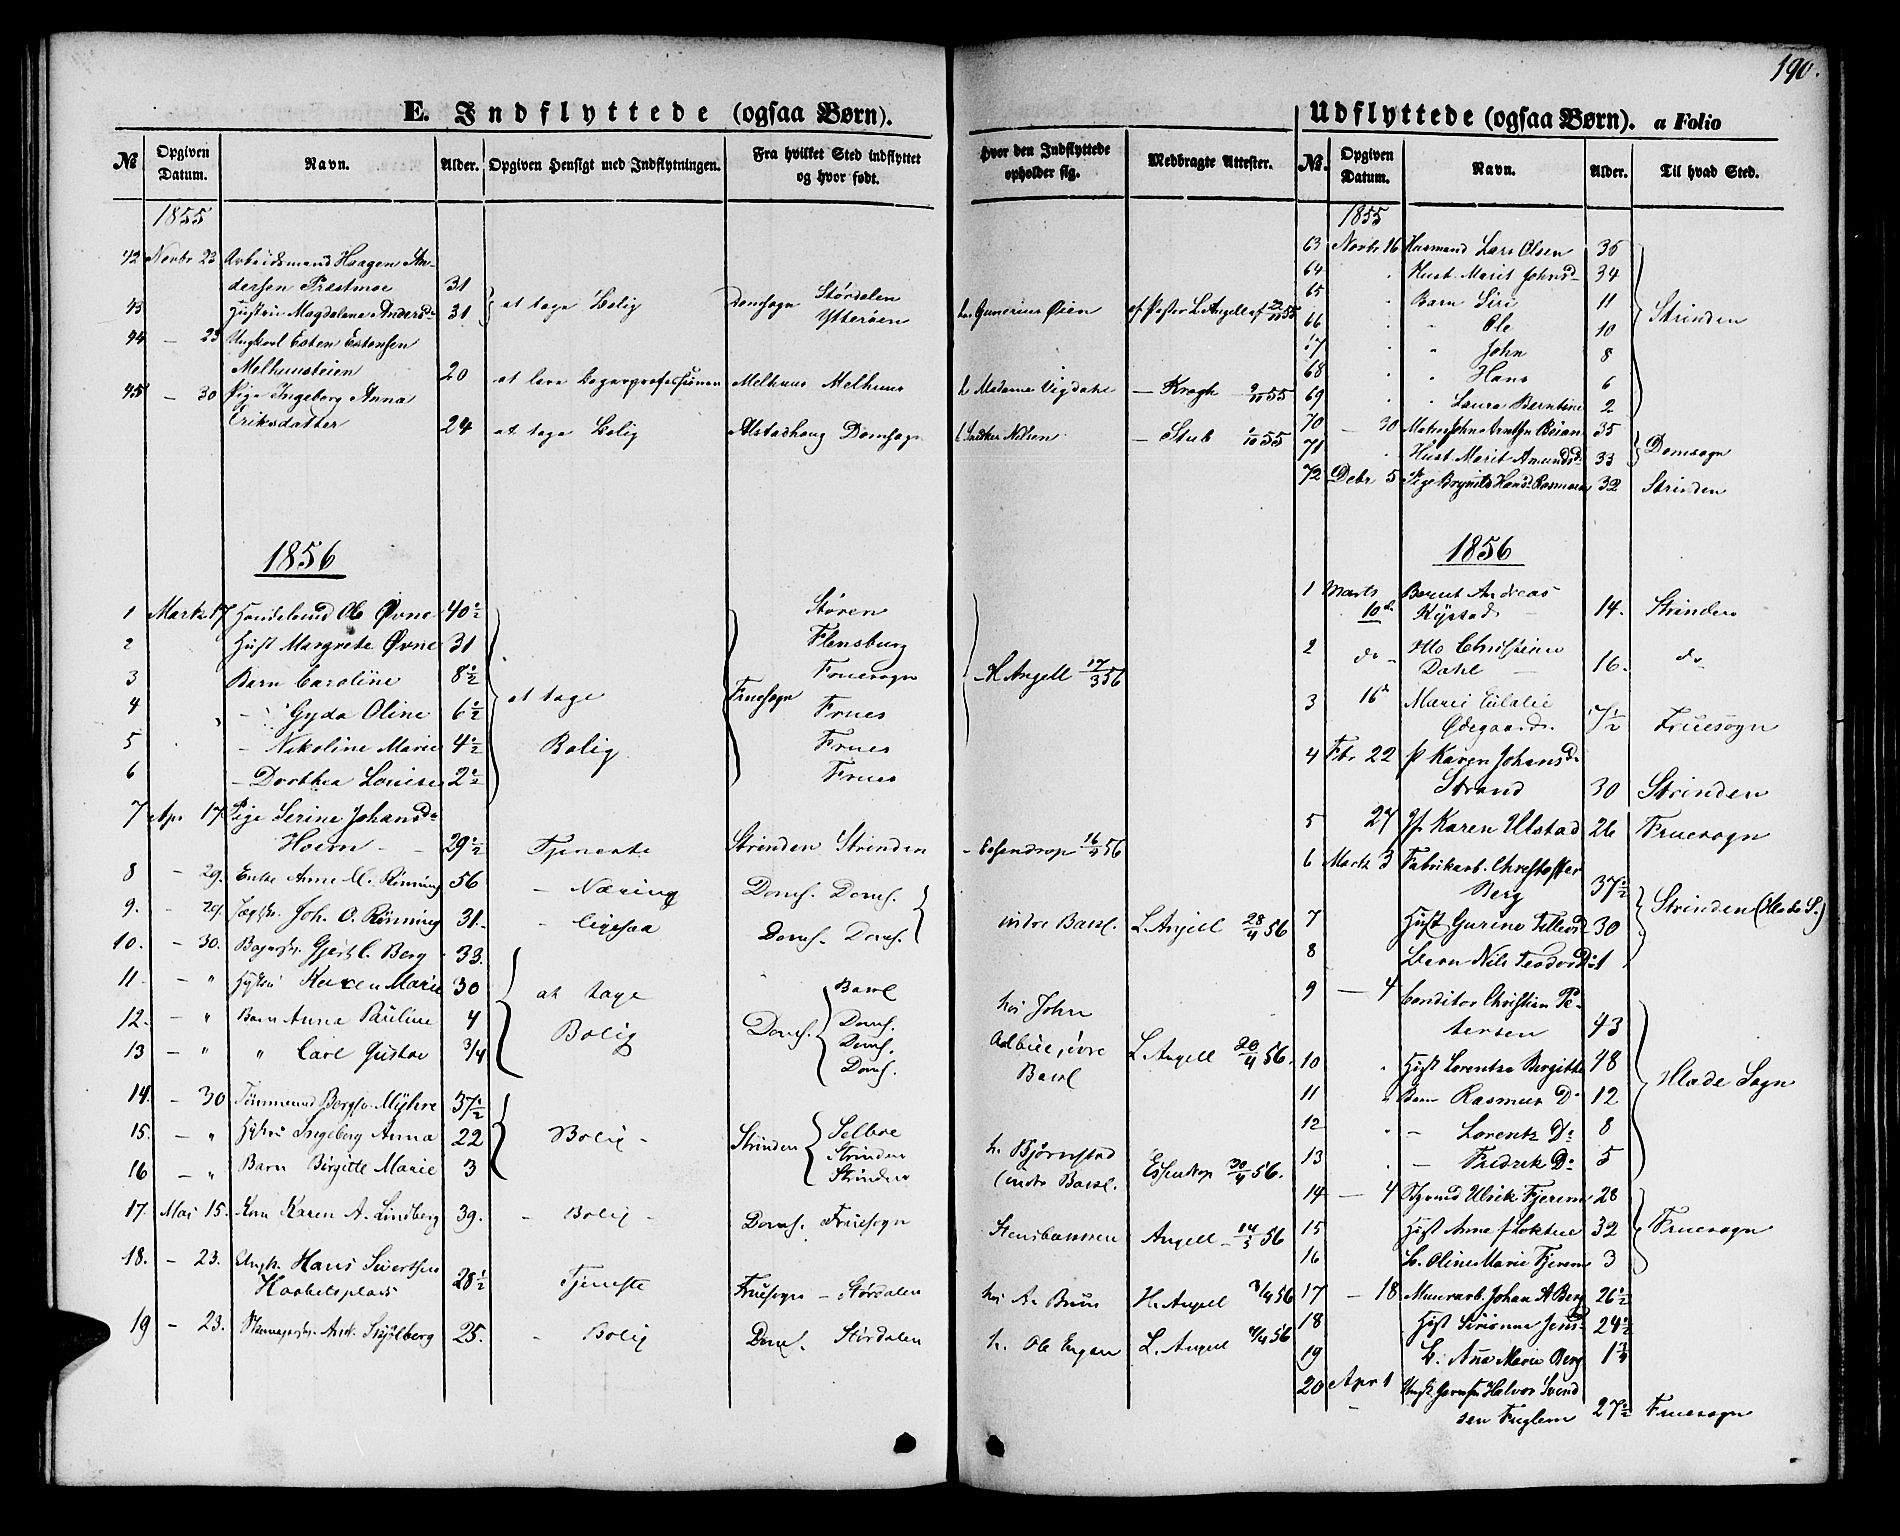 190.
E. Indflyttede (ogsaa Børn).
No Opgiven Datum. Navn. Alder. Opgiven Hensigt med Indflytningen. Fra hvilket Sted indflyttet og hvor født.
1855
42 Novbr 23 Arbeidsmand Haagen An-
dersen Præstmoe 31
43 Hustru Magdalena Andersd. 31 at tage Bolig Domsogn Størdalen Ytterøen
44 — 23 Ungkarl Esten Estensen
Melhuusteien 20 at lære Bagerprofessionen Melhuus Melhuus
45 — 30 Pige Ingeborg Anna
Eriksdatter 24 at tage Bolig Alstadhoug Domsogn
1856
1 Marts 17 Handelsmd Ole Øvne 40½ Støren
2 Hust Margrete Øvne 31 Flensburg
3 Barn Caroline 8½ Fruesogn
4 Gyda Oline 6½ at tage Fruesogn Frues
5 Nikoline Marie 4½ Bolig Frues
6 Dorthea Louise 2½ Frues
7 Apr 17 Pige Serine Johansd.
Hoem 29½ Tjeneste Strinden Strinden
8 — 29. Enke Anne M. Rönning 56 — Næring Doms. Doms.
9. — 29. Joh. O. Rönning 31. — ligesaa Doms. Doms.
10. — 30. Gjert C. Berg 33.
11. — " Hustru Karen Marie 30 at tage Baxl
12. — " Barn Anna Pauline 4 Bolig Doms. Doms.
13 — " " Carl Gustav 3/4 Doms.
Doms.
14. — 30 Tømmermd Myhre 37½
15. — " Hustru Ingeborg Anna 22 Bolig Strinden Selboe Strinden
16 — " Barn Birgitte Marie 3 Strinden
17. Mai 15. Karen A. Lindberg 39. — Bolig — Doms. Fruesogn
18. — 23. Ungk. Hans Sivertsen
28½ Tjeneste Fruesogn — Størdalen
19 — 23. And. Skjølberg 25. — Bolig Doms. Størdalen
Hvor den Indflyttede opholder sig. Medbragte Attester.
hos Gunerius Øien af Pastor L. Angell af 22/11 55
h. Madame Vigdahl — Krogh 9/10 55
h. Snedker Nilsen — Stub 1/10 55
H Angell 17/3 56
— Essendrop 16/4 56
indre Baxl. L. Angell 28/4 56
hos John
øvre L. Angell 28/4 56.
Baxl
h. Bjørnstad
indre Baxl. Essendrop 30/4 56.
Steinbakken Angell — 14/5 56
hos A. Bruun H. Angell 3/4 56
h. Ole Engan L. Angell 4/4 56
Udflyttede (ogsaa Børn). a Folio
No. Opgiven Datum. Navn. Alder. Til hvad Sted.
1855
63 Novbr 16 Huusmand Lars Olsen 35
64 Hust Marit Johnsd. 34
65 Barn Siri 11 Strinden
66 " Ole 10
67 " John 8
68 " Hans 6
69 " Laura Berntine 2
70 — 30 Beian 35
71 Hust. Marit Amundsd. 33 Domsogn
72 Debr 5 Pige 32 Strinden
1856
1 Marts Bernt Andreas
10de Kystad 14. Strinden
2 do — Christine
Dahl 16. do
3 16de Marie Eulalie
Ødegaard. 7½ Fruesogn
4 Fbr. 22 P Karen Johansd.
Strand 30 Strinden
5 27 Jf. Karen Ulstad 26 Fruesogn
6 Marts 3 Fabrikarb. Christoffer
Berg 37½ Strinden (Hlade S.)
7 Hust Gurine Tellevsd 30
8 Barn Nils 1
9 — 4 Conditor Christian Pe-
tersen 43
10 Hust Lorentse Birgitte 48
11 Barn Rasmus Do 12 Hlade Sogn
12 — Lorentz Do 8
13 — Fredrik Do 5
14 — 4 Ulrik Fjerem 28
15 Hust Anne 32 Fruesogn
16 B. Oline Marie Fjerem 3
17 — 18 Muurarb. Johan A Berg 26½
18 Hust Jens- 24½
19 B. Ana Marie Berg 1¼
20 Apr 1 Halvor Svend
sen Fuglem 27½ Fruesogn